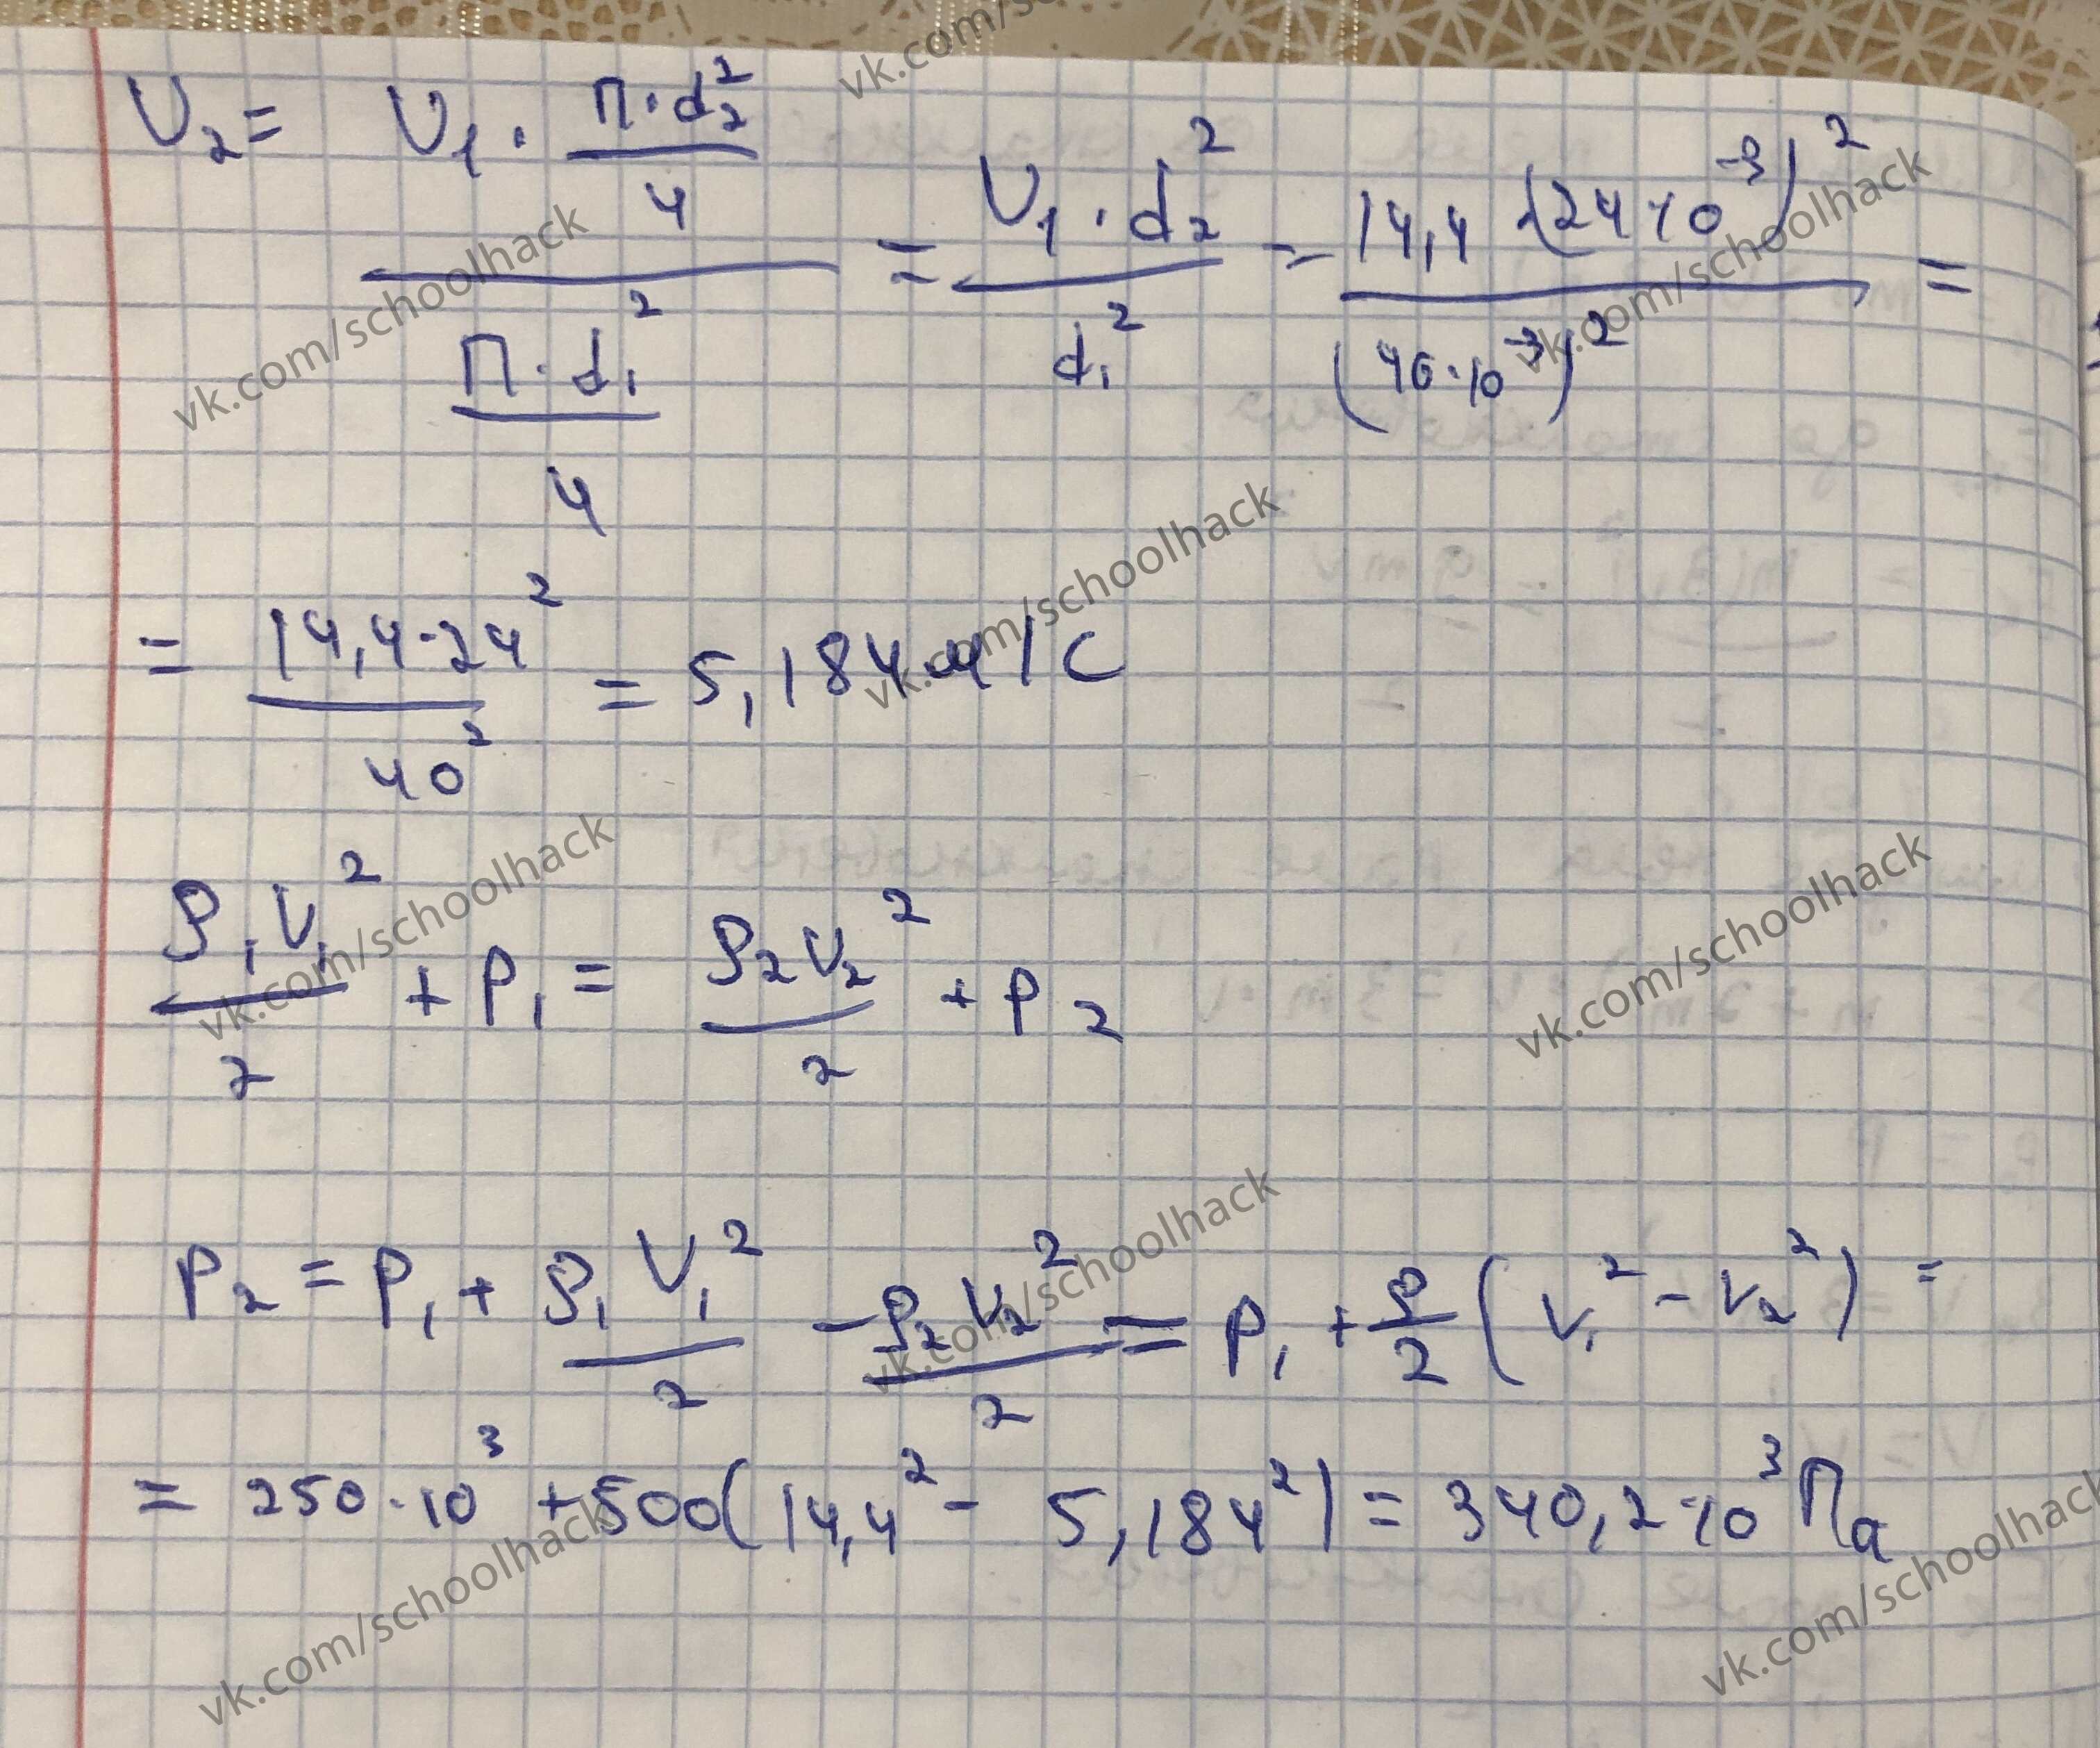 υ₂ = (υ₁ · (π·d₂²)/4) / ((π·d₁²)/4) = (υ₁·d₂²)/d₁² = (14,4·(24·10⁻³)²)/(40·10⁻³)² =
= (14,4·24²)/40² = 5,184 м/с
ρ₁v₁²/2 + p₁ = ρ₂v₂²/2 + p₂
p₂ = p₁ + ρ₁v₁²/2 − ρ₂v₂²/2 = p₁ + ρ/2 (v₁² − v₂²) =
= 250·10³ + 500(14,4² − 5,184²) = 340,2·10³ Па
vk.com/schoolhack
vk.com/schoolhack
vk.com/schoolhack
vk.com/schoolhack
vk.com/schoolhack
vk.com/schoolhack
vk.com/schoolhack
vk.com/schoolhack
vk.com/schoolhack